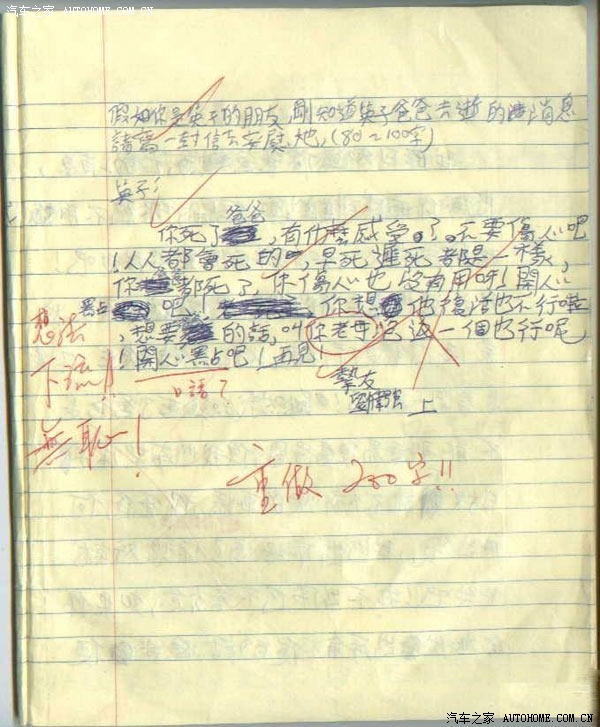 汽车之家 AUTOHOME.COM.CN
假如你是英子的朋友,剛知道英子爸爸去逝的消息
請寫一封信去安慰她,(80~100字)
英子:
爸爸
你死了,有什麼感受。了。不要傷心吧
!人人都會死的,早死遲死都是一樣,
你都死了,你傷心也沒有用呀!開心
點吧,你想他復活也不行啦
,想要的話,叫你老母另一個也行呢
!開心點吧!再見
摯友
劉偉強 上
想法
下流!!
無恥!
口語?
重做 200字!!
汽车之家 AUTOHOME.COM.CN